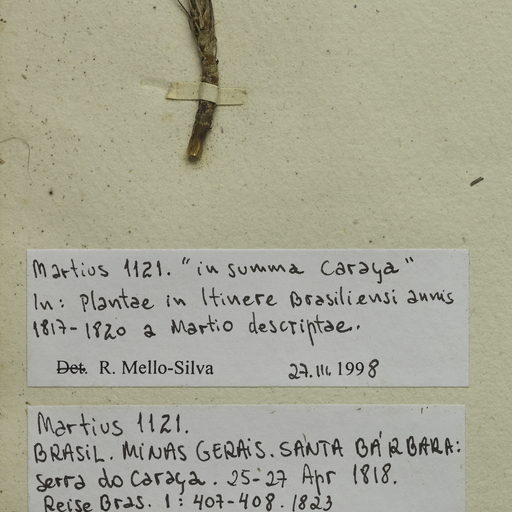 Martius 1121. "in summa Caraça"
In: Plantae in Itinere Brasiliensi annis
1817-1820 a Martio descriptae.
Det. R. Mello-Silva 27.III.1998
Martius 1121.
BRASIL. MINAS GERAIS. SANTA BÁRBARA:
Serra do Caraça. 25-27 Apr 1818.
Reise Bras. 1: 407-408. 1823